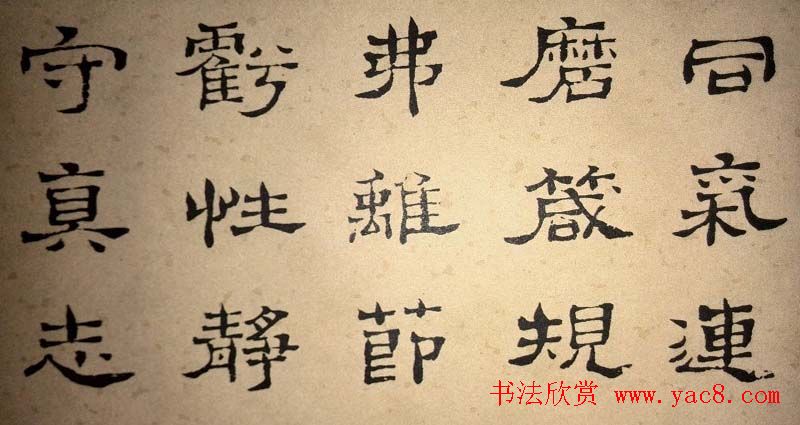 同氣連
磨箴規
弗離節
虧性靜
守真志
书法欣赏 www.yac8.com